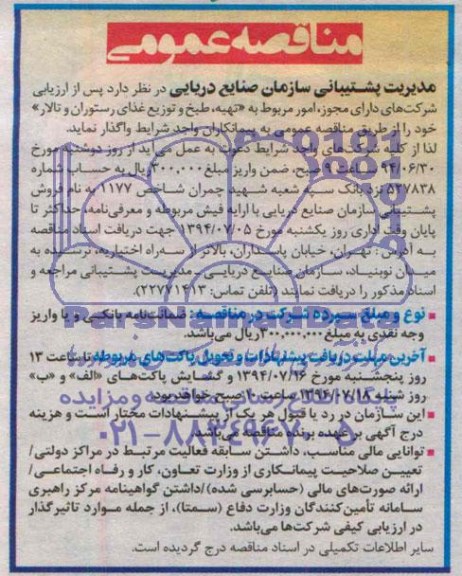 مناقصه عمومی
مدیریت پشتیبانی سازمان صنایع دریایی در نظر دارد پس از ارزیابی
شرکت‌های دارای مجوز، امور مربوط به «تهیه، طبخ و توزیع غذای رستوران و تالار»
خود را از طریق مناقصه عمومی به پیمانکاران واجد شرایط واگذار نماید.
لذا از کلیه شرکت‌های واجد شرایط دعوت به عمل می‌آید از روز دوشنبه مورخ
۹۴/۰۶/۳۰ ساعت ۹ صبح، ضمن واریز مبلغ ۳۰۰,۰۰۰ ریال به حساب شماره
۵۲۷۸۳۸ نزد بانک سپه شعبه شهید چمران شاخص ۱۱۷۷ به نام فروش
پشتیبانی سازمان صنایع دریایی با ارایه فیش مربوطه و معرفی‌نامه، حداکثر تا
پایان وقت اداری روز یکشنبه مورخ ۱۳۹۴/۰۷/۰۵ جهت دریافت اسناد مناقصه
به آدرس: تهران، خیابان پاسداران، بالاتر از سه‌راه اختیاریه، نرسیده به
میدان نوبنیاد، سازمان صنایع دریایی - مدیریت پشتیبانی مراجعه و
اسناد مذکور را دریافت نمایند (تلفن تماس: ۲۲۷۷۱۴۱۳).
▪ نوع و مبلغ سپرده شرکت در مناقصه: ضمانت‌نامه بانکی و یا واریز
وجه نقدی به مبلغ ۳۰۰,۰۰۰,۰۰۰ ریال می‌باشد.
▪ آخرین مهلت دریافت پیشنهادات و تحویل پاکت‌های مربوطه تا ساعت ۱۳
روز پنجشنبه مورخ ۱۳۹۴/۰۷/۱۶ و گشایش پاکت‌های «الف» و «ب»
روز شنبه ۱۳۹۴/۰۷/۱۸ ساعت ۱۰ صبح خواهد بود.
▪ این سازمان در رد یا قبول هر یک از پیشنهادات مختار است و هزینه
درج آگهی بر عهده برنده مناقصه می‌باشد.
▪ توانایی مالی مناسب، داشتن سابقه فعالیت مرتبط در مراکز دولتی/
تعیین صلاحیت پیمانکاری از وزارت تعاون، کار و رفاه اجتماعی/
ارائه صورت‌های مالی (حسابرسی شده)/داشتن گواهینامه مرکز راهبری
سامانه تأمین‌کنندگان وزارت دفاع (سمتا)، از جمله موارد تاثیرگذار
در ارزیابی کیفی شرکت‌ها می‌باشد.
سایر اطلاعات تکمیلی در اسناد مناقصه درج گردیده است.
ParsNamadData
۰۲۱-۸۸۳۴۹۶۷۰-۵